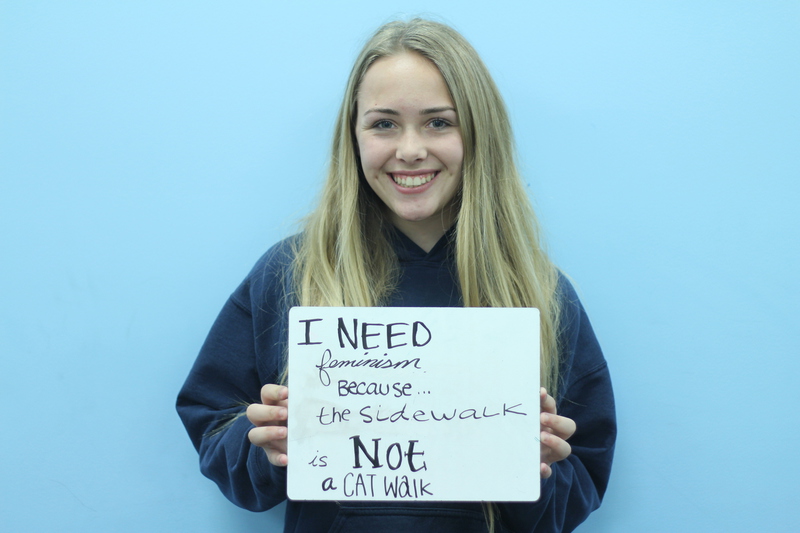 I NEED
feminism
BECAUSE...
the SidewaLK
is NOt
a CAT Walk